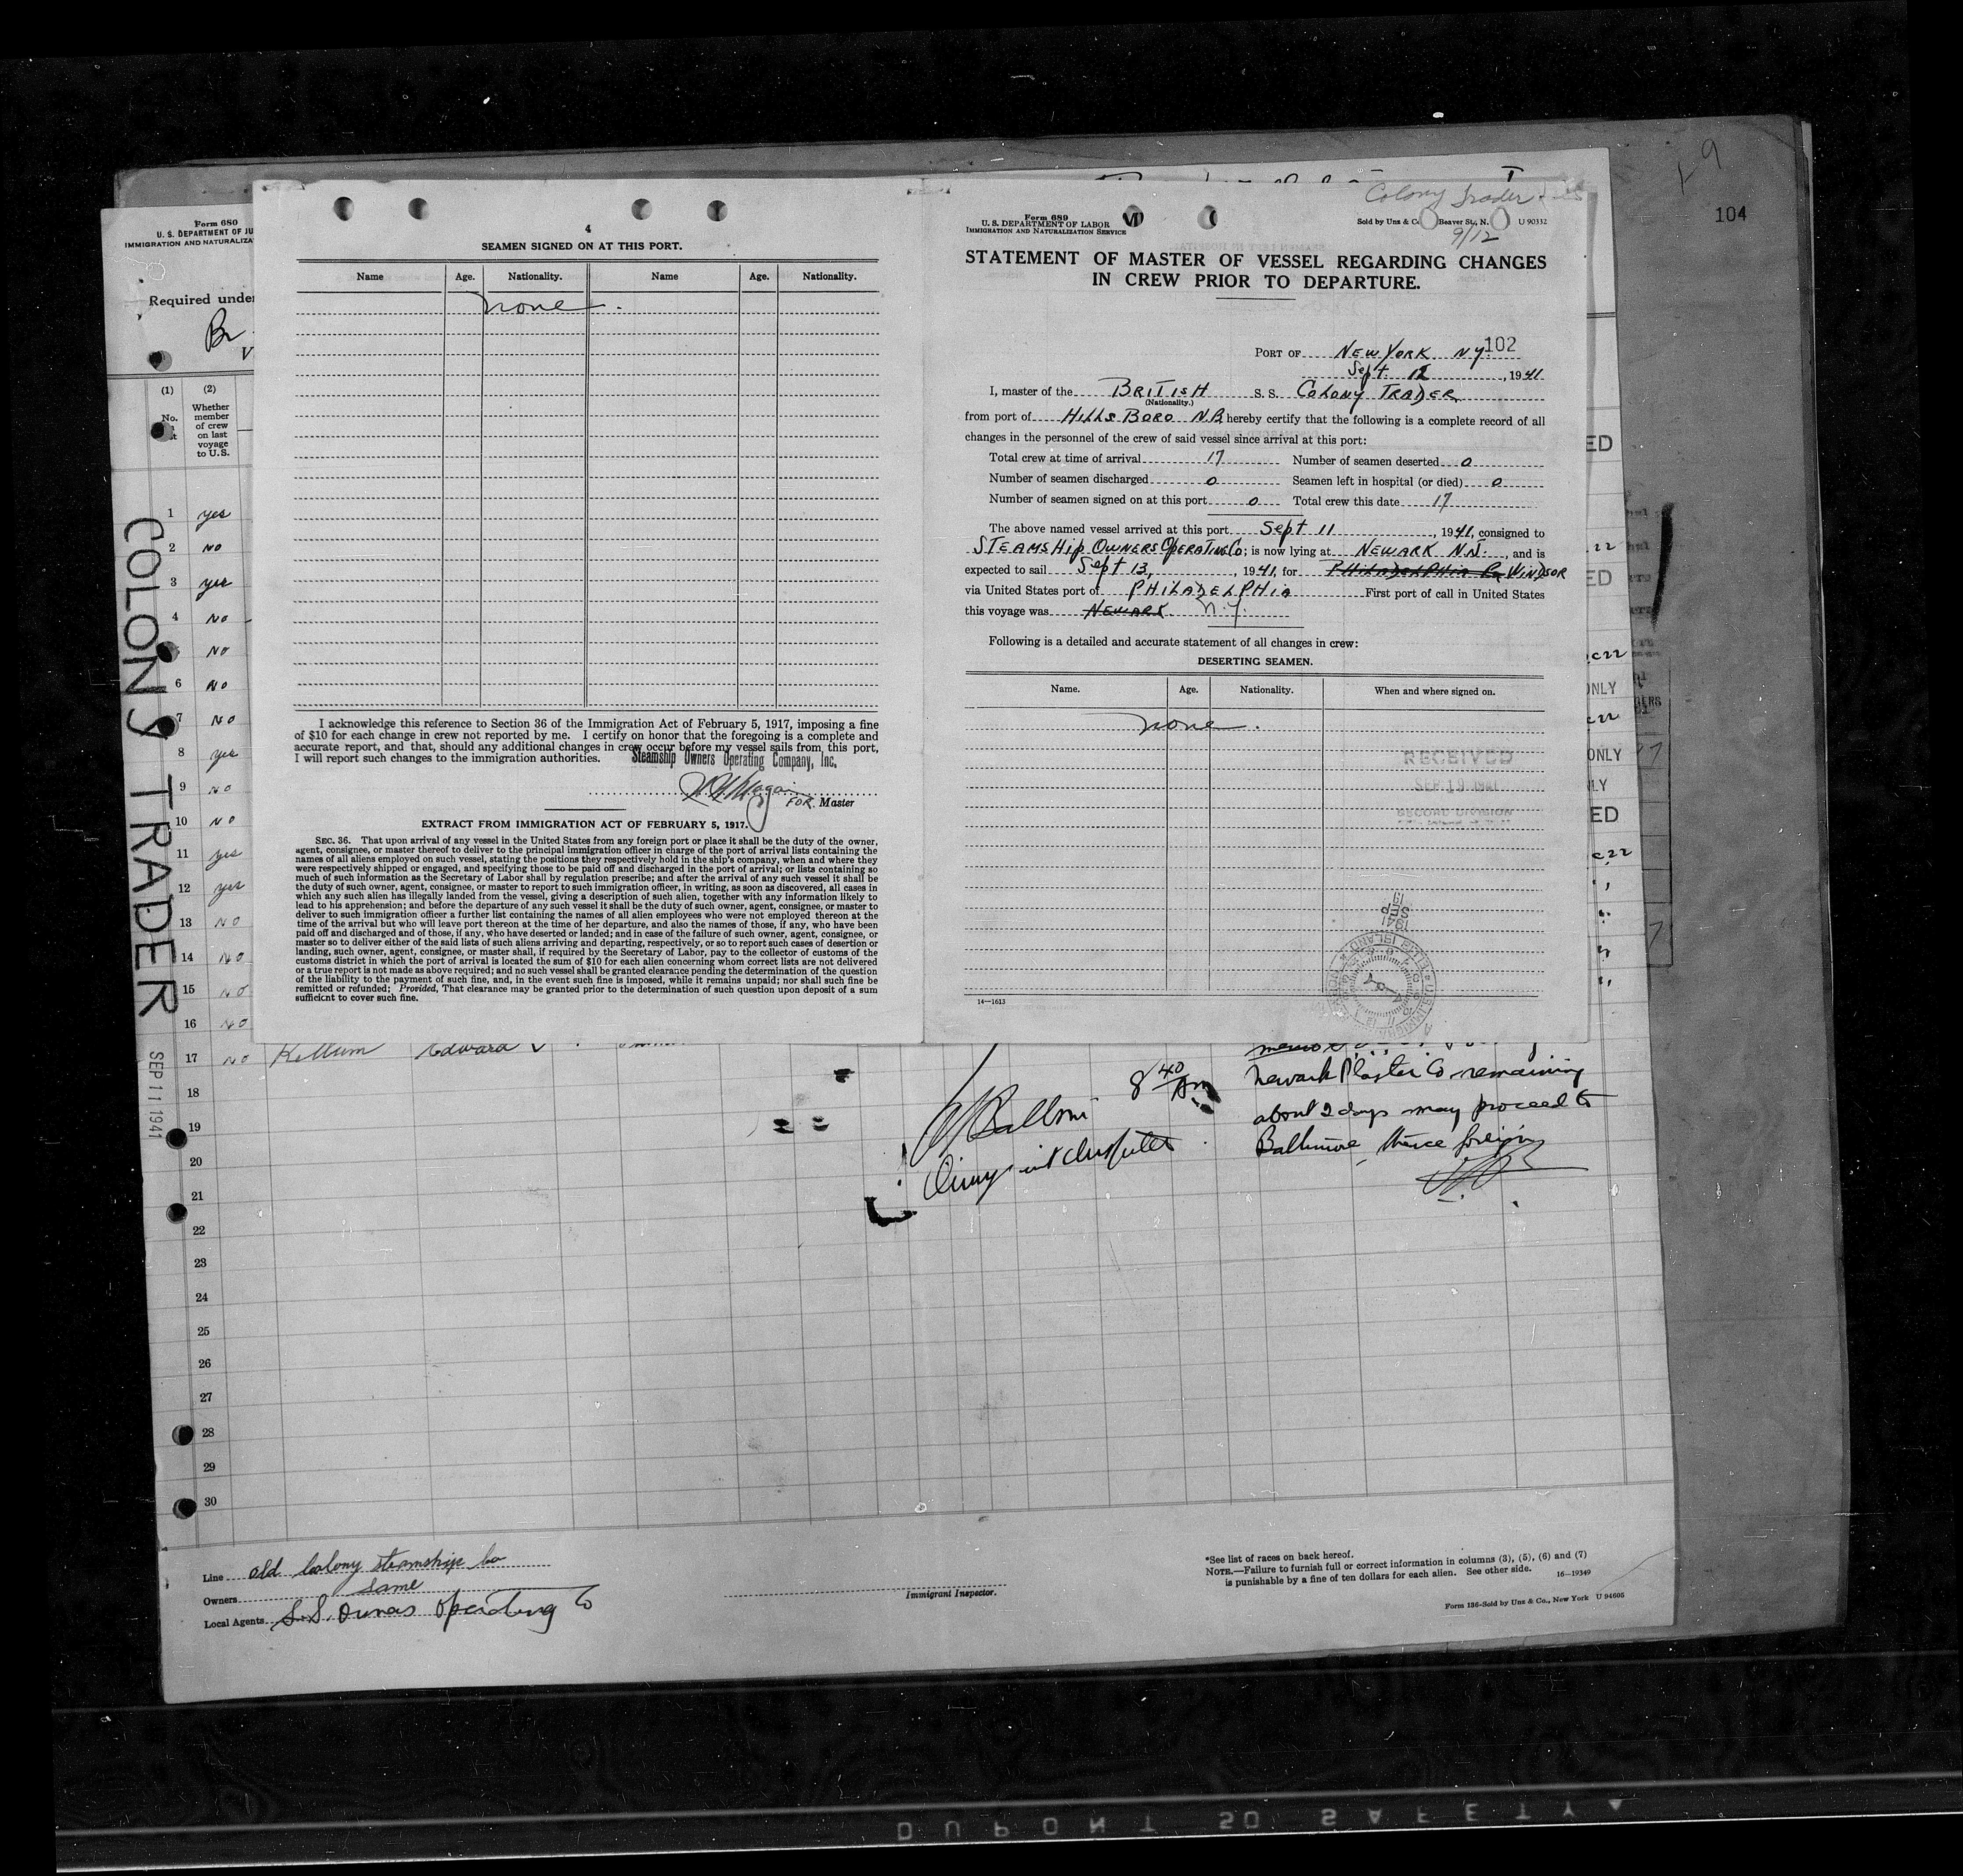 104
Form 680
U. S. DEPARTMENT OF JU
IMMIGRATION AND NATURALIZA
Required under
Br
V
(1)
No.
(2)
Whether
member
of crew
on last
voyage
to U.S.
1 yes
2 NO
3 yes
4 NO
NO
6 NO
7 NO
8 yes
9 NO
10 NO
11 yes
12 yes
13 NO
14 NO
15 NO
16 NO
17 NO Kellum Edward
18
19
20
21
22
23
24
25
26
27
28
29
30
COLONY TRADER
SEP 11 1941
4
SEAMEN SIGNED ON AT THIS PORT.
Name Age. Nationality. Name Age. Nationality.
none.
I acknowledge this reference to Section 36 of the Immigration Act of February 5, 1917, imposing a fine
of $10 for each change in crew not reported by me. I certify on honor that the foregoing is a complete and
accurate report, and that, should any additional changes in crew occur before my vessel sails from this port,
I will report such changes to the immigration authorities.
Steamship Owners Operating Company, Inc.
FOR Master
EXTRACT FROM IMMIGRATION ACT OF FEBRUARY 5, 1917.
SEC. 36. That upon arrival of any vessel in the United States from any foreign port or place it shall be the duty of the owner,
agent, consignee, or master thereof to deliver to the principal immigration officer in charge of the port of arrival lists containing the
names of all aliens employed on such vessel, stating the positions they respectively hold in the ship's company, when and where they
were respectively shipped or engaged, and specifying those to be paid off and discharged in the port of arrival; or lists containing so
much of such information as the Secretary of Labor shall by regulation prescribe; and after the arrival of any such vessel it shall be
the duty of such owner, agent, consignee, or master to report to such immigration officer, in writing, as soon as discovered, all cases in
which any such alien has illegally landed from the vessel, giving a description of such alien, together with any information likely to
lead to his apprehension; and before the departure of any such vessel it shall be the duty of such owner, agent, consignee, or master to
deliver to such immigration officer a further list containing the names of all alien employees who were not employed thereon at the
time of the arrival but who will leave port thereon at the time of her departure, and also the names of those, if any, who have been
paid off and discharged and of those, if any, who have deserted or landed; and in case of the failure of such owner, agent, consignee, or
master so to deliver either of the said lists of such aliens arriving and departing, respectively, or so to report such cases of desertion or
landing, such owner, agent, consignee, or master shall, if required by the Secretary of Labor, pay to the collector of customs of the
customs district in which the port of arrival is located the sum of $10 for each alien concerning whom correct lists are not delivered
or a true report is not made as above required; and no such vessel shall be granted clearance pending the determination of the question
of the liability to the payment of such fine, and, in the event such fine is imposed, while it remains unpaid; nor shall such fine be
remitted or refunded; Provided, That clearance may be granted prior to the determination of such question upon deposit of a sum
sufficient to cover such fine.
Colony Trader
Form 689
U. S. DEPARTMENT OF LABOR
IMMIGRATION AND NATURALIZATION SERVICE
Sold by Unz & Co Beaver St., N. U 90332
9/12
STATEMENT OF MASTER OF VESSEL REGARDING CHANGES
IN CREW PRIOR TO DEPARTURE.
102
PORT OF NEW YORK NY
Sept. 12, 1941
I, master of the BRITISH S. S. COLONY TRADER
(Nationality.)
from port of HILLSBORO N.B. hereby certify that the following is a complete record of all
changes in the personnel of the crew of said vessel since arrival at this port:
Total crew at time of arrival 17 Number of seamen deserted 0
Number of seamen discharged 0 Seamen left in hospital (or died) 0
Number of seamen signed on at this port 0 Total crew this date 17
The above named vessel arrived at this port Sept 11, 1941, consigned to
STEAMSHip OWNERS OpERATING Co; is now lying at NEWARK N.J., and is
expected to sail Sept 13, 1941, for PHILADELPHIA Pa WINDSOR
via United States port of PHILADELPHIA First port of call in United States
this voyage was NEWARK N.Y.
Following is a detailed and accurate statement of all changes in crew:
DESERTING SEAMEN.
Name. Age. Nationality. When and where signed on.
none.
RECEIVED
SEP 19 1941
RECORD DIVISION
1941
SEP
19
ELLIS ISLAND
14—1613
ED
ED
ONLY
ONLY
LY
ED
8 40 Am
Newark Plaster Co remaining
about 2 days may proceed to
Baltimore, thence foreign
Line Old Colony steamship Co
Owners same
Local Agents S.S. Owners Operating Co
Immigrant Inspector.
*See list of races on back hereof.
NOTE.—Failure to furnish full or correct information in columns (3), (5), (6) and (7)
is punishable by a fine of ten dollars for each alien. See other side. 16—19349
Form 136-Sold by Unz & Co., New York U 94605
DUPONT 50 SAFETY